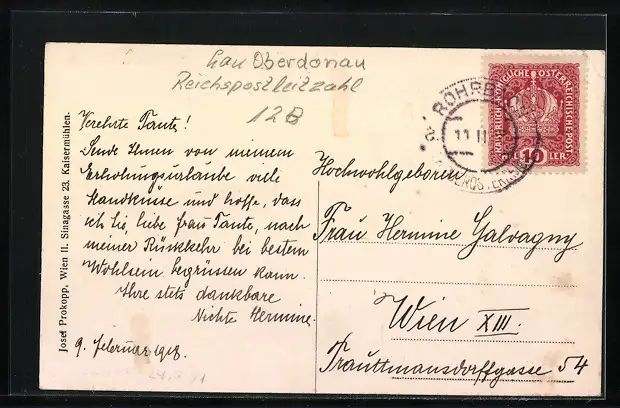 Gau Oberdonau
Reichspostleitzahl
12B
Verehrte Tante!
Sende Ihnen von meinem
Erholungsurlaube viele
Handküsse und hoffe, dass
ich Sie, liebe Frau Tante, nach
meiner Rückkehr bei bestem
Wohlsein begrüssen kann.
Ihre stets dankbare
Nichte Hermine.
9. Februar 1918.
Josef Prokopp, Wien II. Sinagasse 23. Kaisermühlen.
KAISERLICHE KÖNIGLICHE ÖSTERREICHISCHE POST
10 HELLER
ROHRB
11 II 18
OBERÖSTER
Hochwohlgeboren
Frau Hermine Galvagny
Wien XIII.
Trauttmansdorffgasse 54